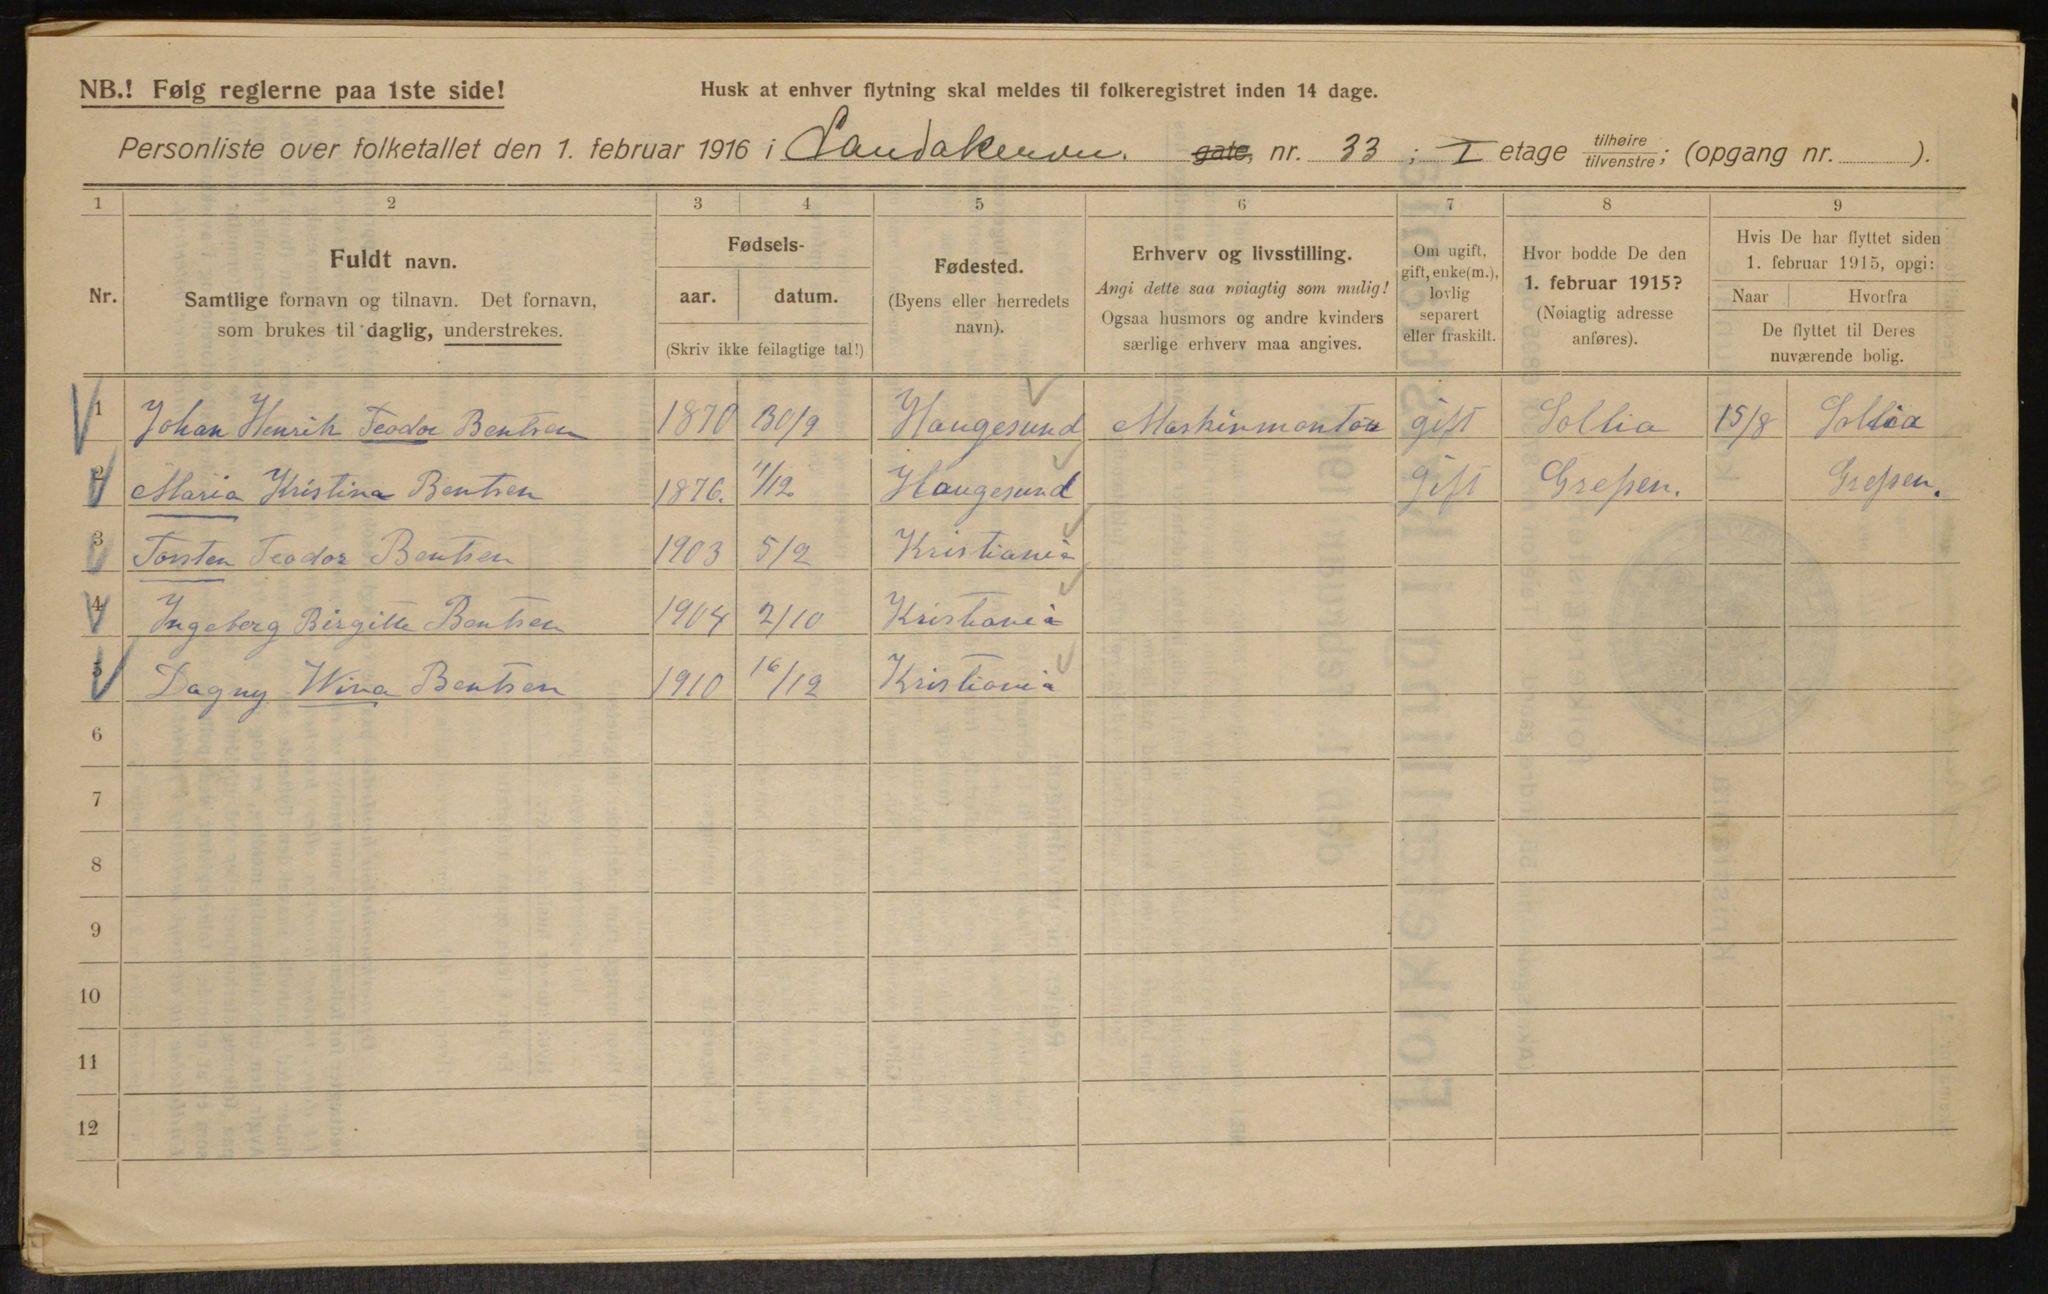 NB.! Følg reglerne paa 1ste side!
Husk at enhver flytning skal meldes til folkeregistret inden 14 dage.
Personliste over folketallet den 1. februar 1916 i Sandakervn. gate, nr. 33; I etage tilhøire/tilvenstre; (opgang nr. ).
1 2 3 4 5 6 7 8 9
Nr.
Fuldt navn.
Samtlige fornavn og tilnavn. Det fornavn,
som brukes til daglig, understrekes.
Fødsels-
aar. datum.
(Skriv ikke feilagtige tal!)
Fødested.
(Byens eller herredets
navn).
Erhverv og livsstilling.
Angi dette saa nøiagtig som mulig!
Ogsaa husmors og andre kvinders
særlige erhverv maa angives.
Om ugift,
gift, enke(m.),
lovlig
separert
eller fraskilt.
Hvor bodde De den
1. februar 1915?
(Nøiagtig adresse
anføres).
Hvis De har flyttet siden
1. februar 1915, opgi:
Naar Hvorfra
De flyttet til Deres
nuværende bolig.
1 Johan Henrik Teodor Bentsen 1870 30/9 Haugesund Maskinmontør gift Sollia 15/8 Sollia
2 Maria Kristina Bentsen 1876. 11/12 Haugesund gift Grefsen. Grefsen.
3 Torsten Teodor Bentsen 1903 5/2 Kristiania
4 Ingeborg Birgitte Bentsen 1904 2/10 Kristiania
5 Dagny Wina Bentsen 1910 16/12 Kristiania
6
7
8
9
10
11
12